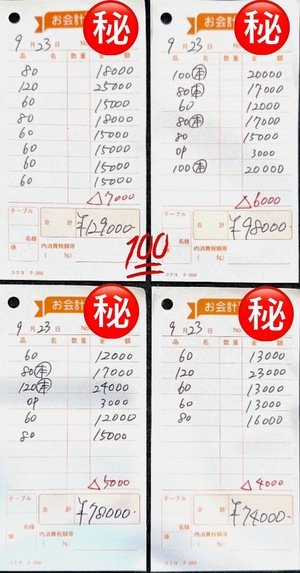 お会計
㊙
9月23日 No.
品 名 数量 金 額
80 18000
120 25000
60 15000
80 18000
60 15000
60 15000
60 15000
60 15000
△7000
テーブル
係
名様
合 計 ¥129000-
内消費税額等
( %)
コクヨ テ-250
お会計
㊙
9月23日 No.
品 名 数量 金 額
100㊍ 20000
80㊍ 17000
60 12000
80㊍ 17000
80 15000
OP 3000
100㊍ 20000
△6000
テーブル
係
名様
合 計 ¥98000-
内消費税額等
( %)
コクヨ テ-250
100
お会計
㊙
9月23日 No.
品 名 数量 金 額
60 12000
80㊍ 17000
120㊍ 24000
OP 3000
60 12000
80 15000
△5000
テーブル
係
名様
合 計 ¥78000-
内消費税額等
( %)
コクヨ テ-250
お会計
㊙
9月23日 No.
品 名 数量 金 額
60 13000
120 23000
60 13000
60 13000
80 16000
△4000
テーブル
係
名様
合 計 ¥74000-
内消費税額等
( %)
コクヨ テ-250